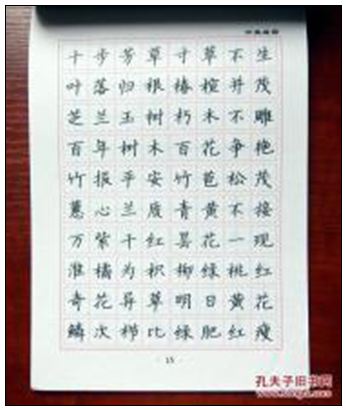 十步芳草寸草不生
叶落归根椿楦并茂
芝兰玉树朽木不雕
百年树木百花争艳
竹报平安竹苞松茂
蕙心兰质青黄不接
万紫千红昙花一现
淮橘为枳柳绿桃红
奇花异草明日黄花
鳞次栉比绿肥红瘦
15
孔夫子旧书网